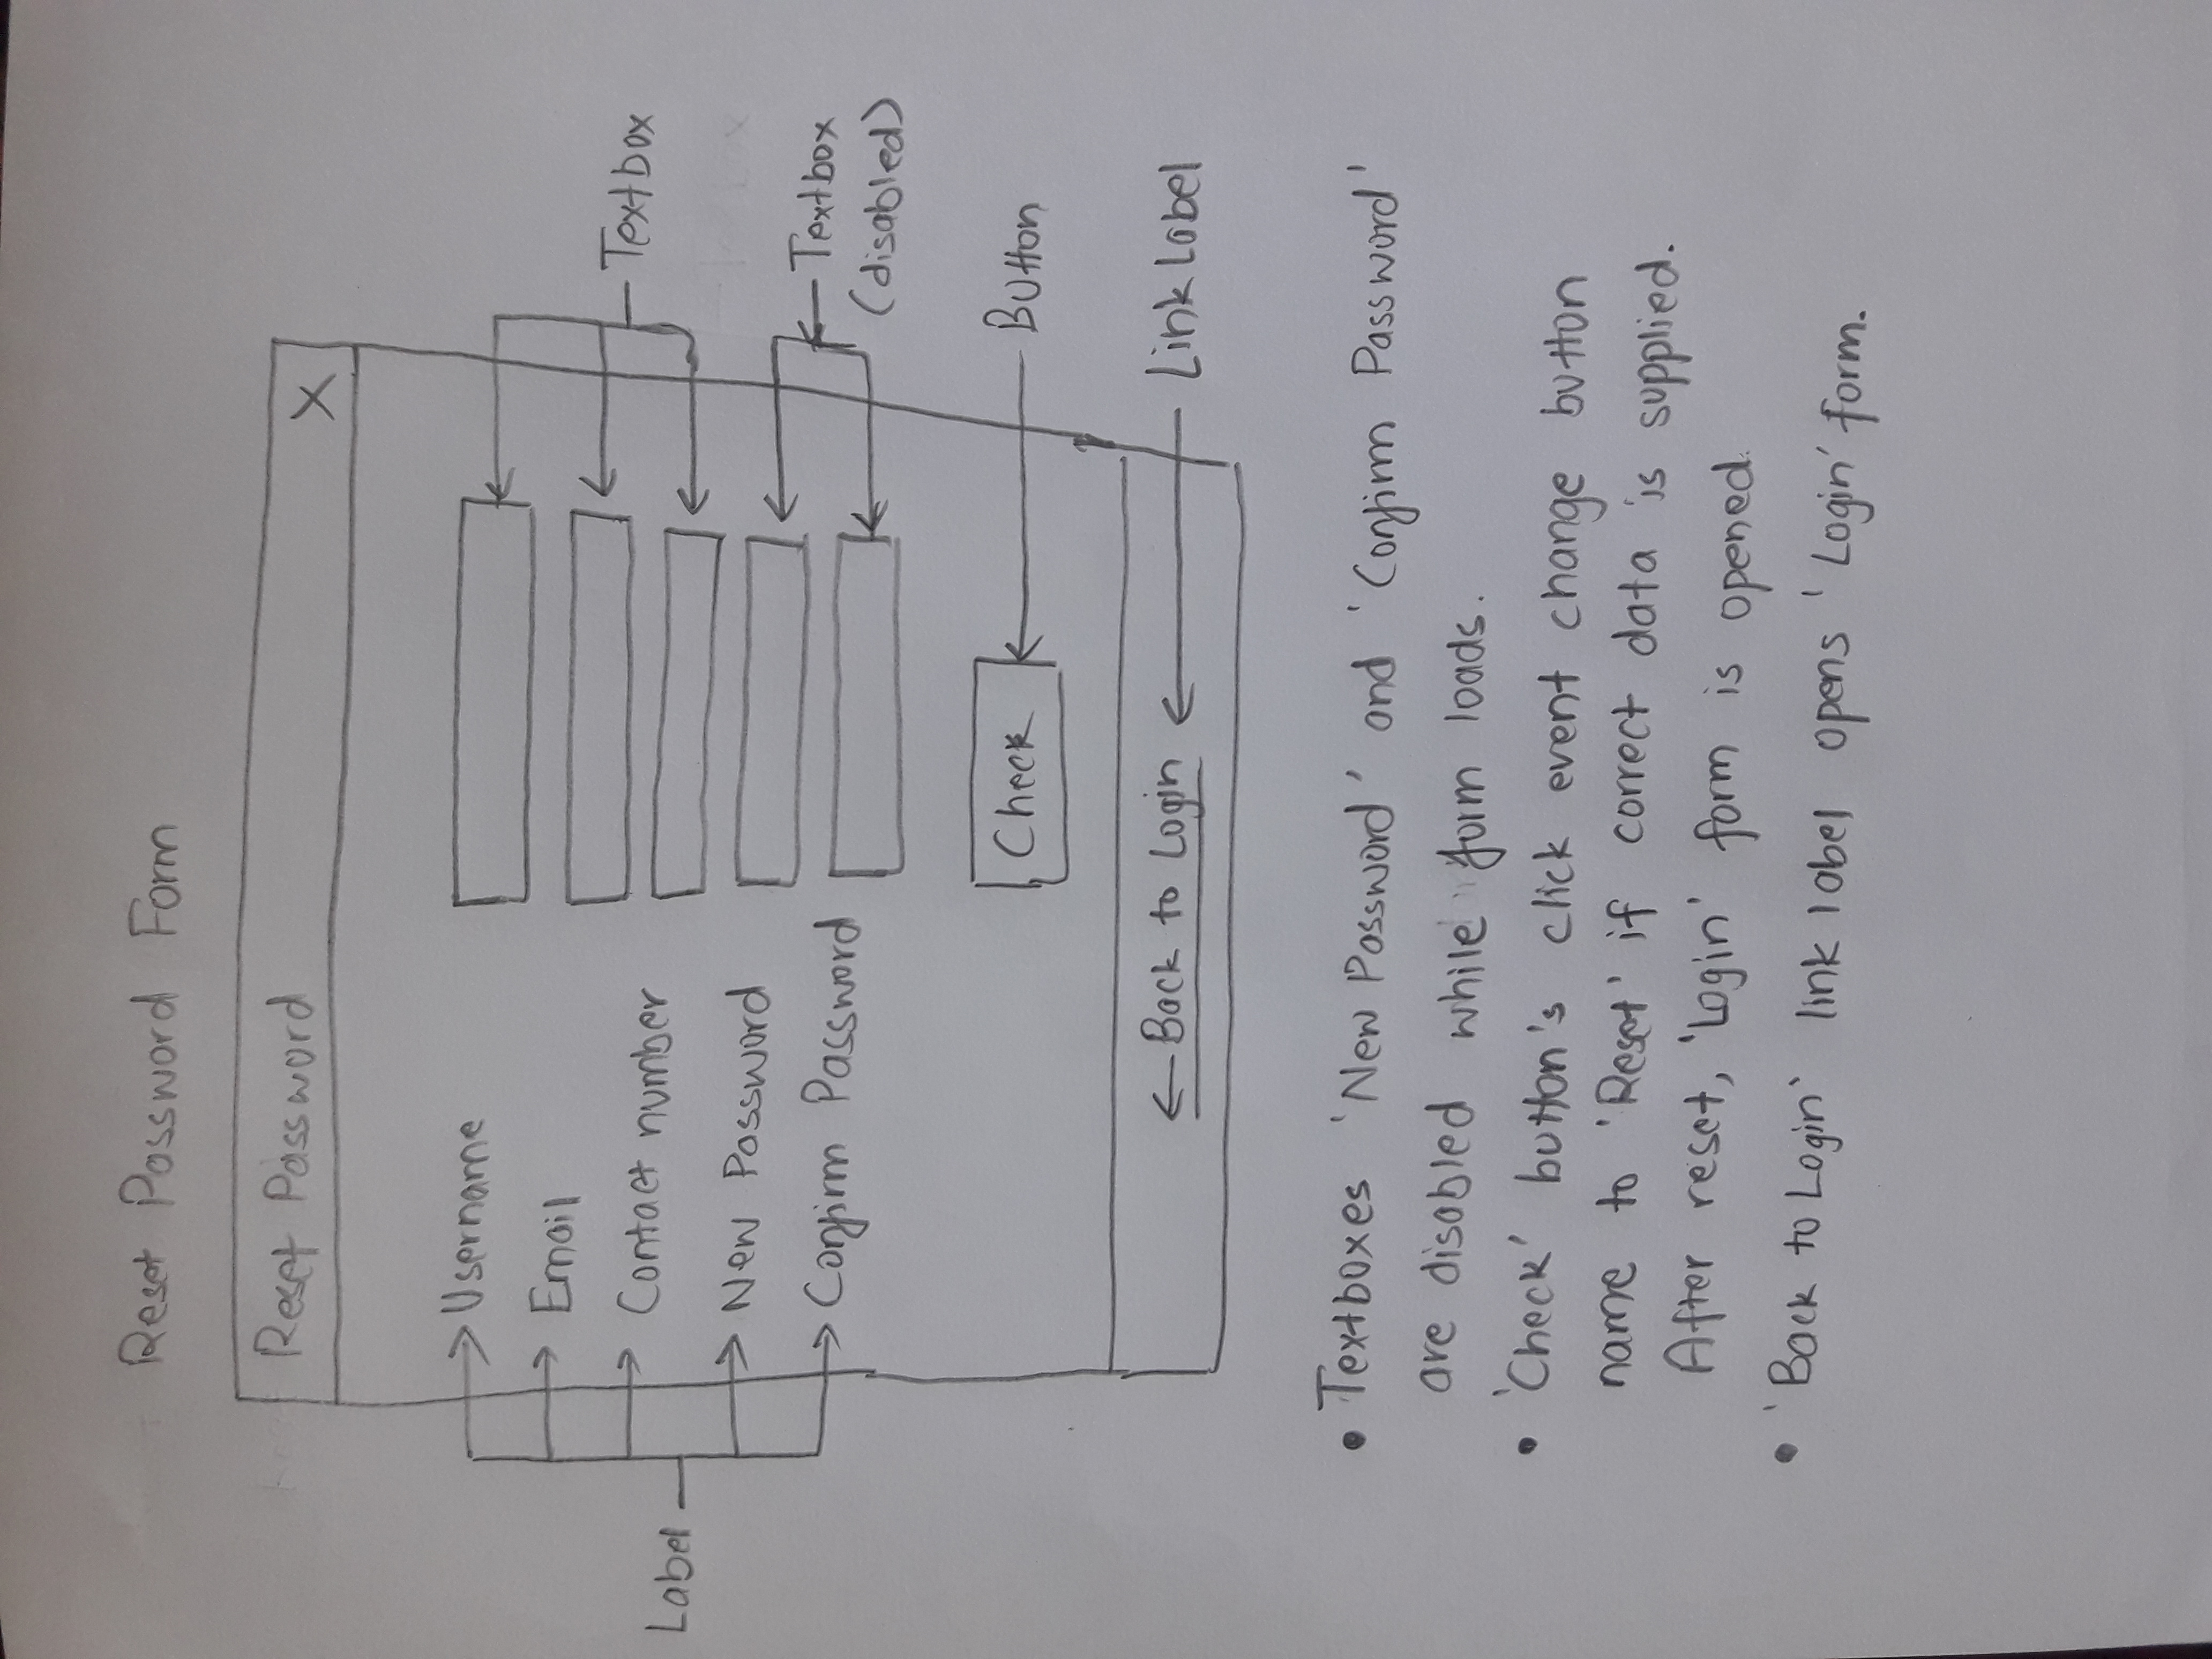 Reset Password Form
Reset Password X
Username
Email
Contact number
Label
New Password
Confirm Password
Textbox
Textbox
(disabled)
Check
Button
← Back to Login
Link Label
• Textboxes 'New Password' and 'Confirm Password'
are disabled while form loads.
• 'Check' button's click event change button
name to 'Reset' if correct data is supplied.
After reset, 'Login' form is opened.
• 'Back to Login' link label opens 'Login' form.